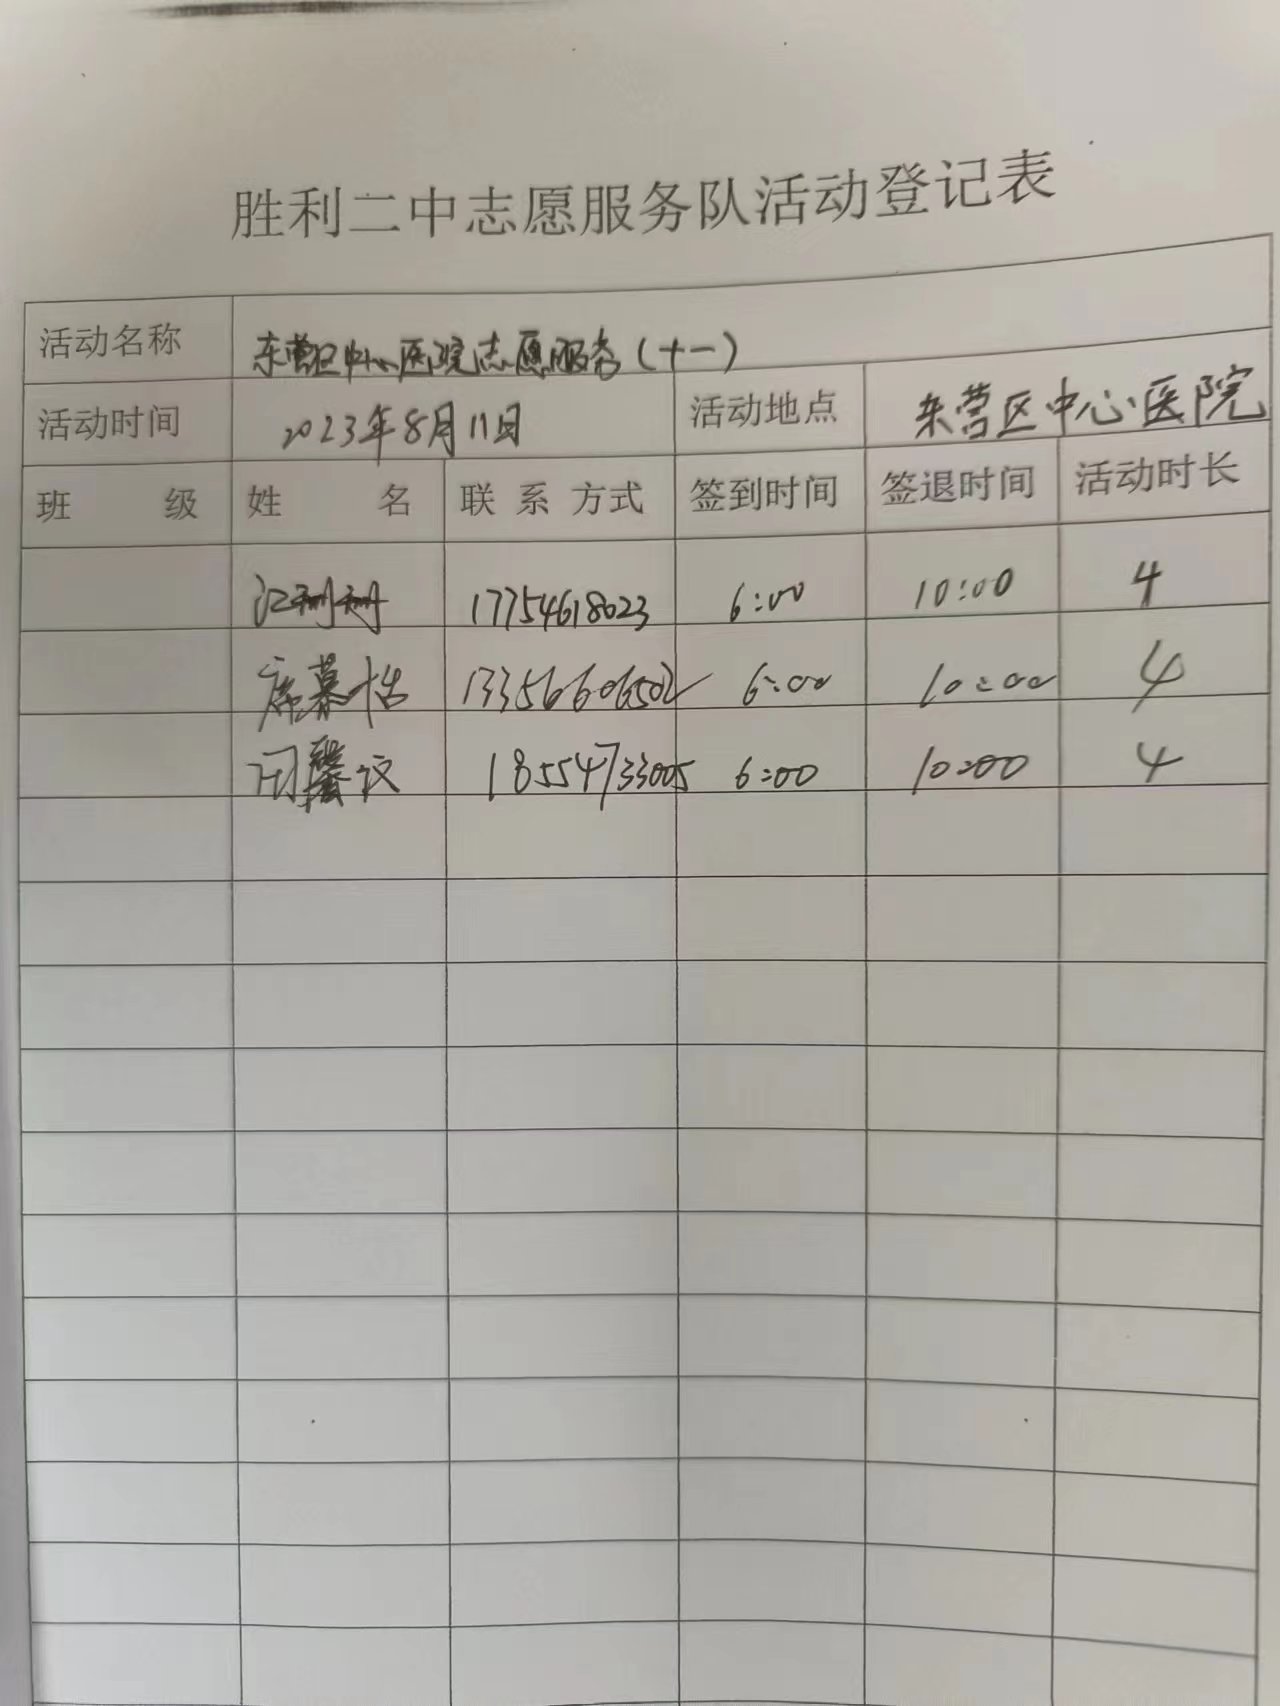 胜利二中志愿服务队活动登记表
活动名称 东营区中心医院志愿服务（十一）
活动时间 2023年8月11日 活动地点 东营区中心医院
班 级 姓 名 联 系 方式 签到时间 签退时间 活动时长
17754618023 6:00 10:00 4
席慕恬 13356606502 6:00 10:00 4
闫馨议 18554733005 6:00 10:00 4